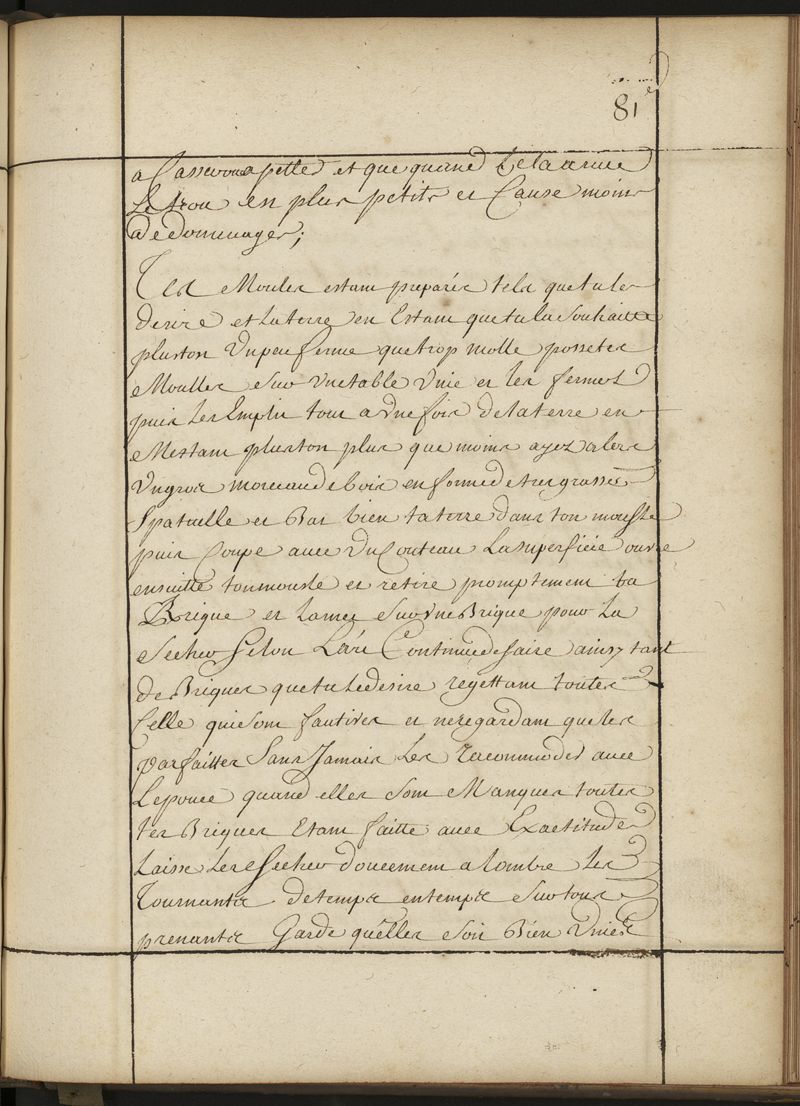 81e
a Casser ou a petter et que quand Cela arrive
Le trou en plus petits et Cause moins
de dommages;
Tes Moules estant preparés tels que tu le
desire et La terre en Estant que tu la souhaitte
plustost Un peu ferme que trop molle posse tes
Moulles sur Une table Unie et les fermes
puis Les Emplir tout a Une fois de la terre en
Mestant plustost plus que moins ayez alors
Un gros morceau de bois en forme de tres grosse
Spatulle et Bat bien ta terre dans ton moulle
puis Coupe avec Un Couteau La superficie ouvre
ensuitte ton moule et retire promptement ta
Brique et La met sur Une Brique pour La
Secher Selon L'ár Continue de faire ainsy tant
de Briques que tu Le desire regettant toutes
Celle qui sont fautives et ne regardant que les
parfaittes Sans Jamais Les racommoder avec
Le pouce quand elles sont Manques toutes
tes Briques Etant faitte avec Exactitude
Laisse Les Secher doucement a lombre Les
Tournants de temps en temps sur tous
prenants Garde quelles soit Bien Unies